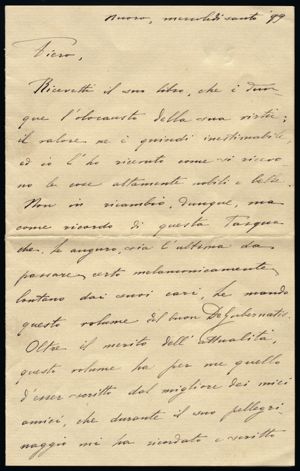 Nuoro, mercoledì santo '99
Fiero,
Ricevetti il suo libro, che è dun-
que l'olocausto della sua virtù:
il valore ne è quindi inestimabile,
ed io l'ho ricevuto come si ricevo-
no le cose altamente nobili e belle.
Non in ricambio, dunque, ma
come ricordo di questa Pasqua
che, le auguro, sia l'ultima da
passare certo melanconicamente
lontano dai suoi cari, le mando
questo volume del buon De Gubernatis.
Oltre il merito dell'attualità,
questo volume ha per me quello
d'esser scritto dal migliore dei miei
amici, che durante il suo pellegri-
naggio mi ha ricordato e scritto